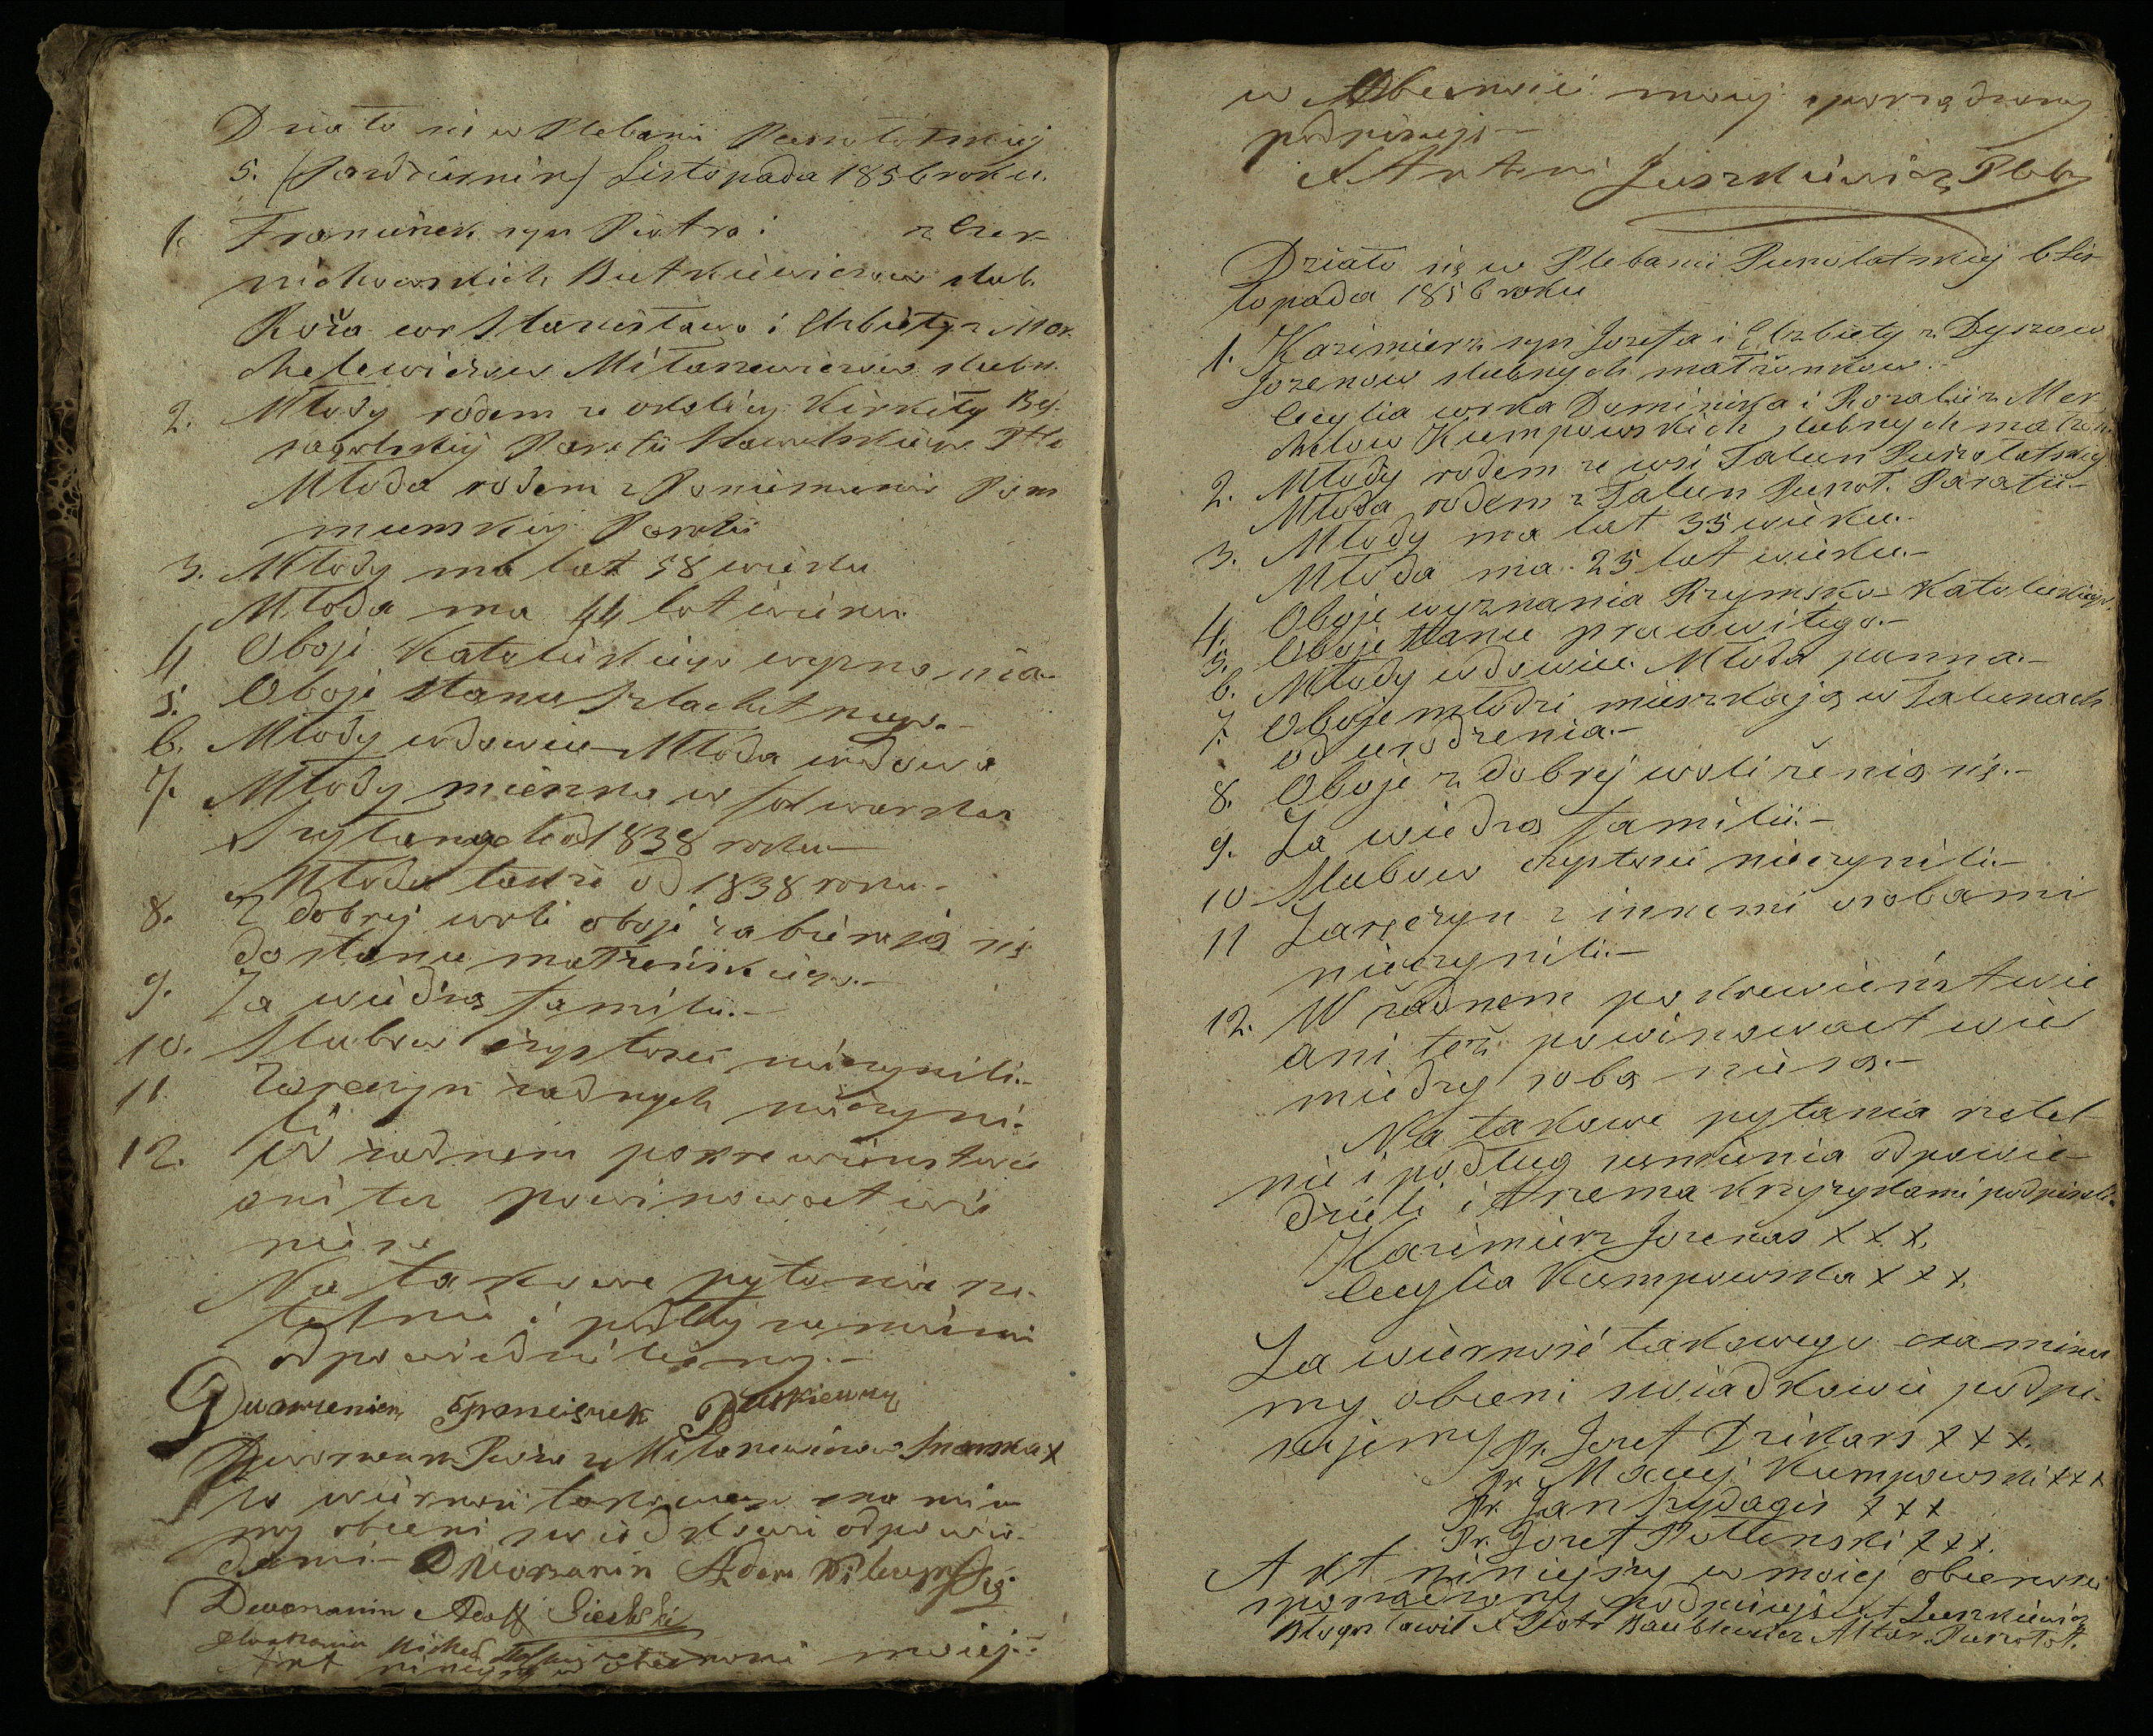 Działo się w Plebanii Puszołatskiej
5. (Pazdziernik) Listopada 1856 roku.
1. Franciszek syn Piotra i z Czer-
nichowskich Butkiewiczow slub.
Roża cor Stanisława i Elzbiety z Mor-
chelewiczow Milaszewiczow slubn.
2. Młody rodem z okolicy Kirkiły
Parafii Powiatu
Młoda rodem z Poniemunia Poni
munskiej Parafii
3. Młody ma lat 58 wieku
Młoda ma 44 lat wieku.
4 Oboje Katolickiego wyznania.
5. Oboje stanu szlachetnego.-
6. Młody wdowiec Młoda wdowa
7. Młody mieszka w folwarku
od 1838 roku-
Młoda także od 1838 roku.-
8. Z dobrej woli oboje zabierają się
do stanu matżeńskiego.-
9. Za wiedzą familii.-
10. Slubow czystosci nieczynili.-
11 Zaręczyn żadnych nieczyni-
li
12. W żadnem pokrewienstwie
ani tez powinowactwie
nie są
Na takowe pytania rze-
telnie i podług sumienia
odpowiedzielismy.-
Dworzenin Franciszek Butkiewicz
Dworzanka Roża z Milaszewiczow x
Za wiernosc takowego examinu
my obecni swiadkowie odpowia-
damy- Dworzanin Adam
Dworzanin Adolf Siesicki
Dworzanin Michał
Akt niniejszy w obecnosci mojej
w Obecnosci mojej sporządzony
podpisuje-
X Antoni Juszkiewicz Pleb
Działo się w Plebanii Puszołatskiej 6 Lis-
topada 1856 roku
1. Kazimierz syn Jozefa i Elzbiety z Dyszow
Jozenow slubnych matżonkow.-
Cecylia corka Dominika i Rozalii z Mer-
chelow Kumpowskich slubnych matżon.
2. Młody rodem ze wsi Talun Puszołatskiej
Młoda rodem z Talun Puszoł. Parafii-
3. Młody ma lat 35 wieku.-
Młoda ma 25 lat wieku.-
4. Oboje wyznania Rzymsko-Katolickiego.
5. Oboje stanu prawowitego.-
6. Młody wdowiec Młoda panna.-
7. Oboje młodzi mieszkają w Talunach
od urodzenia.-
8. Oboje z dobrej woli żenią się.-
9. Za wiedzą familii.-
10 Slubow czystosci nieczynili.-
11 Zaręczyn z innemi osobami
nieczynili.-
12. W żadnem pokrewieństwie
ani też powinowactwie
miedzy sobą nie są.-
Na takowe pytania rzetel-
nie i podług sumienia odpowie-
dzieli i trzema krzyzykami podpisali.
Kazimierz Jozenas X X X.
Cecylia Kumpowska X X X.
Za wiernosć takowego examinu
my obecni swiadkowie podpi-
sujemy Pr. Jozef Dzikars X X X.
Pr Maciej Kumpowski X X X
Pr. Jan Szydagis X X X
Pr. Jozef Potenski X X X.
Akt niniejszy w mojej obecnosci
sporządzony podpisuje X A Juszkiewicz
Błogosławił X Piotr Baublewicz Altar. Puszołat.